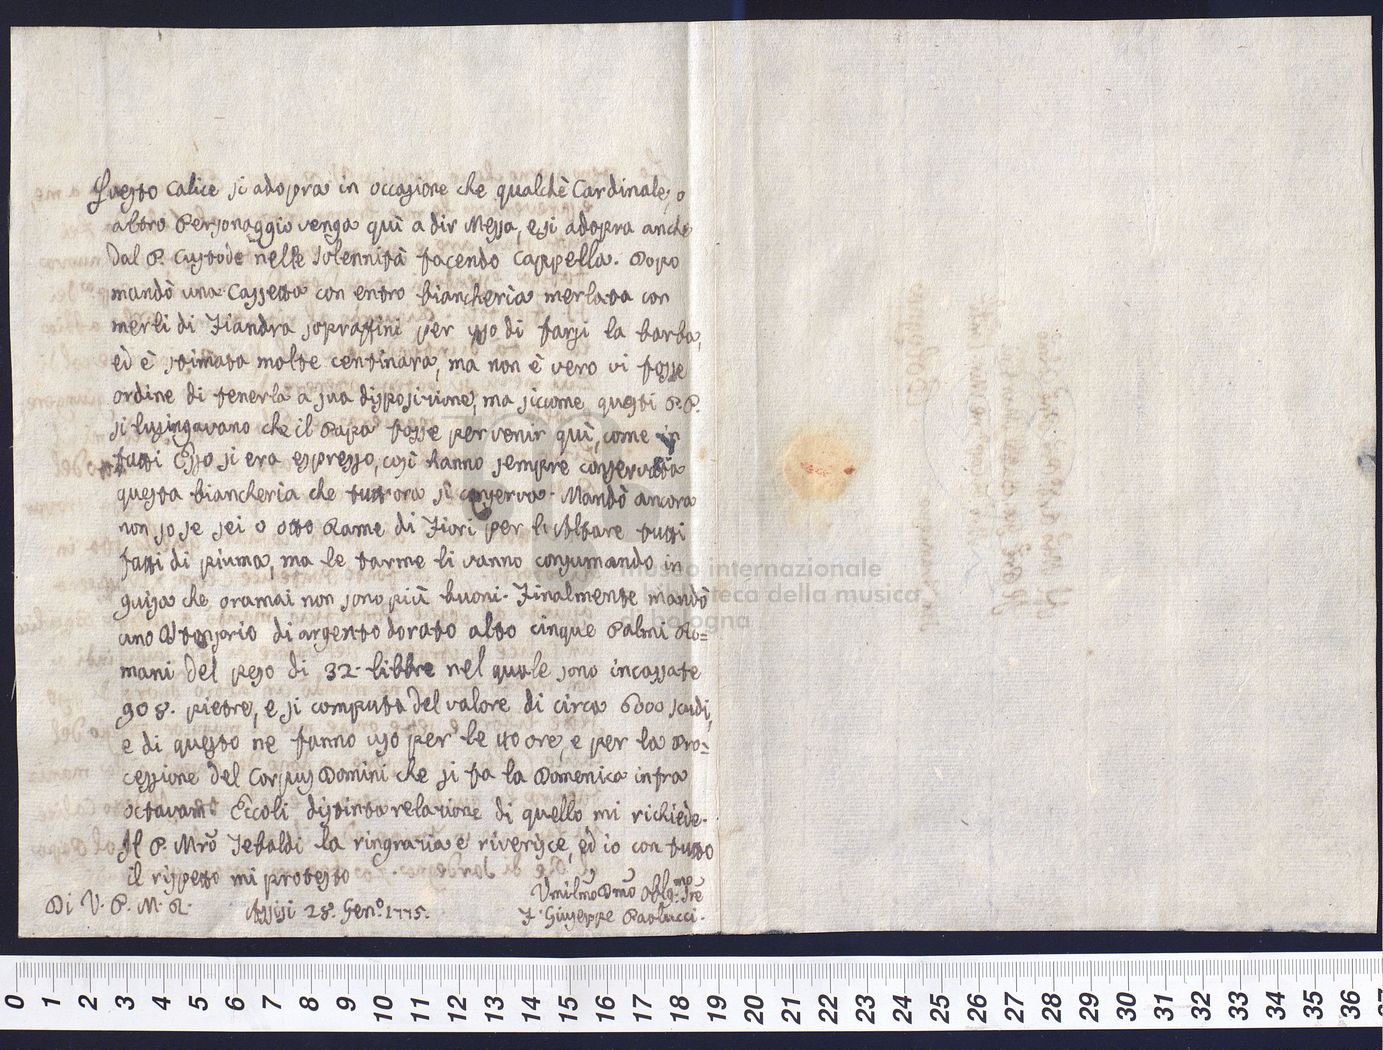 Questo Calice si adopra in occasione che qualchè Cardinale, o
altro Personaggio venga quì a dir Messa, e si adopra anche
dal P. Custode nelle Solennità facendo Cappella. Dopo
mandò una Cassetta con entro biancheria merlata con
merli di Fiandra sopraffini per uso di farsi la barba,
ed è stimata molte centinara, ma non è vero vi fosse
ordine di tenerla a sua disposizione, ma siccome questi P.P.
si lusingavano che il Papa fosse per venir quì, come in
fatti Esso si era espresso, così hanno sempre conservata
questa biancheria che tutt'ora si conserva. Mandò ancora
non so se sei o otto Rame di Fiori per l'Altare tutti
fatti di piuma, ma le tarme li vanno consumando in
guisa che oramai non sono più buoni. Finalmente mandò
uno Ostensorio di argento dorato alto cinque Palmi Ro=
mani del peso di 32. libbre nel quale sono incassate
908. pietre, e si computa del valore di circa 6000 scudi,
e di questo ne fanno uso per le 40 ore, e per la Pro=
cessione del Corpus Domini che si fa la Domenica infra
octavam. Eccoli distinta relazione di quello mi richiede.
Il P. Mrõ Tebaldi la ringrazia e riverisce, ed io con tutto
il rispetto mi protesto
Di V. P. M. R. Assisi 28. Gen.º 1775.
Umilmõ Dmõ Obblg.mo Sre
F. Giuseppe Paolucci.
museo internazionale
e biblioteca della musica
di bologna
0 1 2 3 4 5 6 7 8 9 10 11 12 13 14 15 16 17 18 19 20 21 22 23 24 25 26 27 28 29 30 31 32 33 34 35 36 37